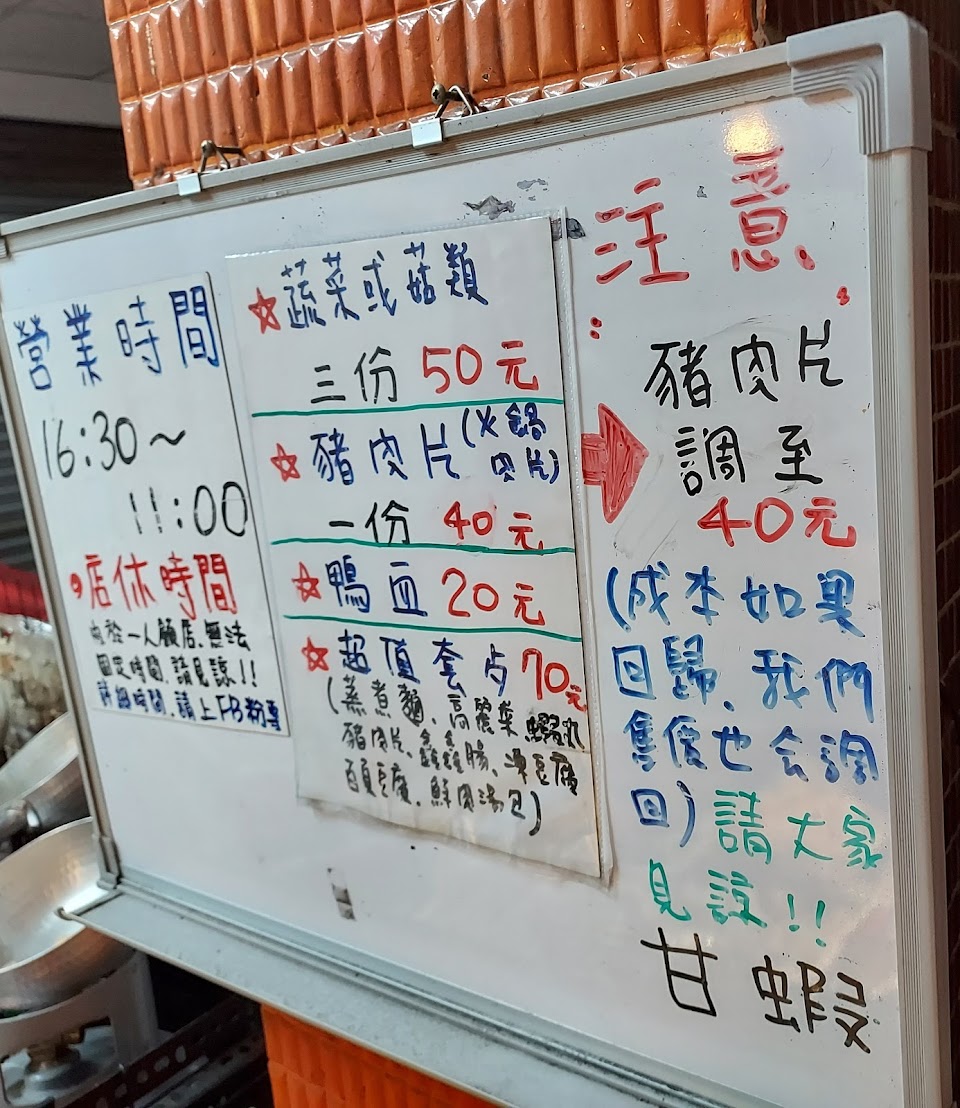 營業時間
16:30～
11:00
店休時間
由於一人顧店、無法
固定時間、請見諒!!
詳細時間、請上FB粉專
☆蔬菜或菇類
三份 50元
☆豬肉片(火鍋
肉片)
一份 40元
☆鴨血 20元
☆超值套 70元
(蒸煮麵、高麗菜、蝦丸
豬肉片、鑫鑫腸、凍豆腐
百頁豆腐、鮮肉湯包)
注意
豬肉片
調至
40元
(成本如果
回歸、我們
售價也会調
回)請大家
見諒!!
甘蝦